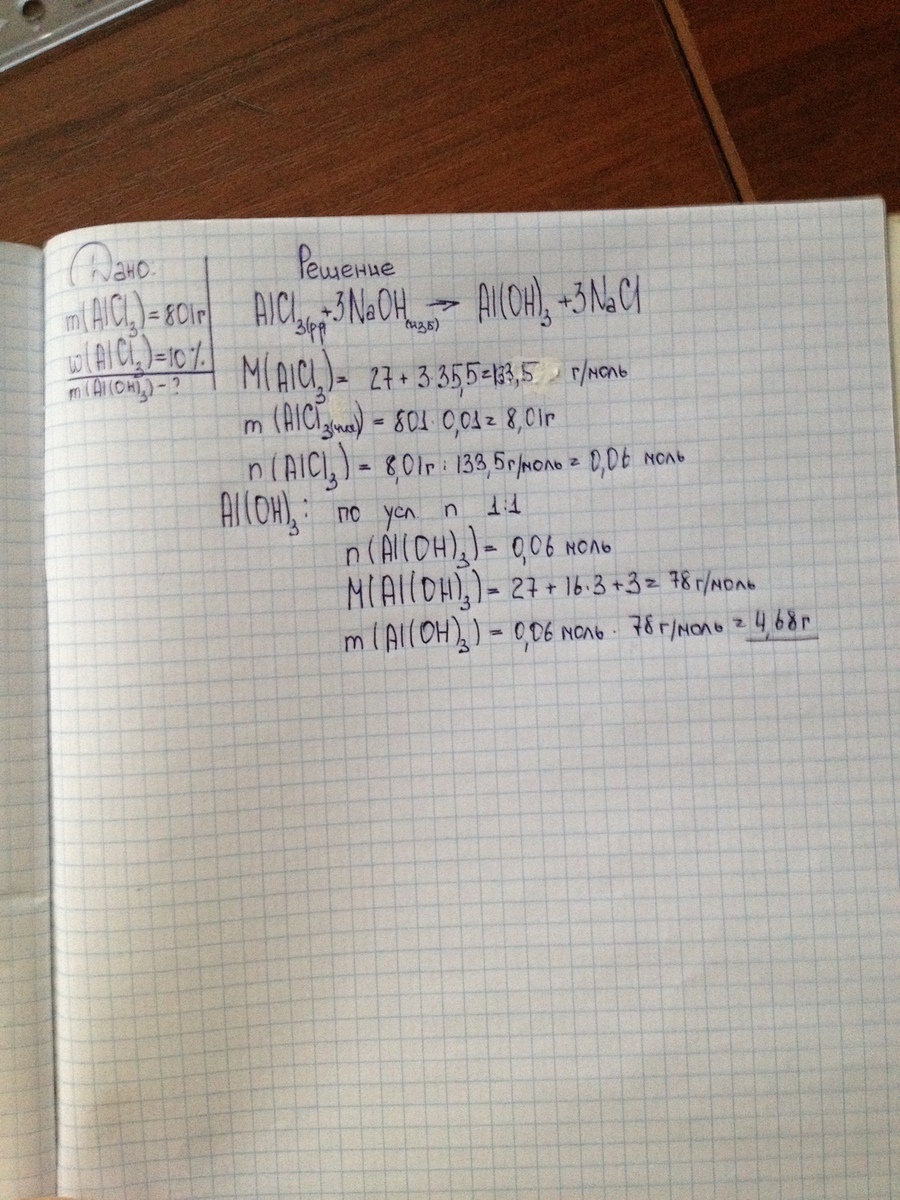 Дано:
m(AlCl₃)=801г
w(AlCl₃)=10%
m(Al(OH)₃)-?
Решение
AlCl₃(рр)+3NaOH(изб) → Al(OH)₃+3NaCl
M(AlCl₃)= 27+3·35,5=133,5 г/моль
m(AlCl₃(чист)) = 801·0,01= 8,01г
n(AlCl₃) = 8,01г : 133,5г/моль = 0,06 моль
Al(OH)₃: по усл n 1:1
n(Al(OH)₃)= 0,06 моль
M(Al(OH)₃)= 27+16·3+3= 78г/моль
m(Al(OH)₃) = 0,06 моль · 78г/моль = 4,68г